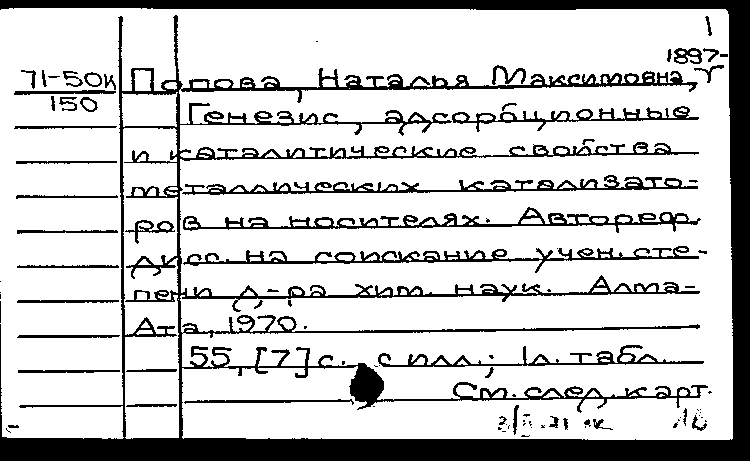 1
1897-
71-50к Попова, Наталья Максимовна,
150
Генезис, адсорбционные
и каталитические свойства
металлических катализато=
ров на носителях. Автореф.
дисс. на соискание учен. сте-
пени д-ра хим. наук. Алма=
Ата, 1970.
55, [7] с. с илл.; 1 л. табл.
См. след. карт.